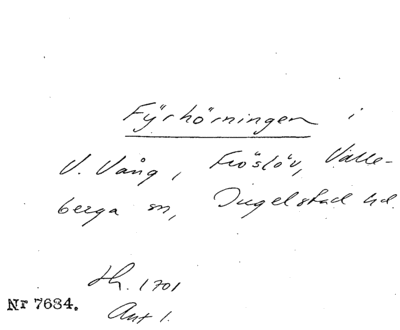 Fyrhörningen i
V. Vång, Fröslöv, Valle-
berga sn, Ingelstad hd.
th. 1701
Akt 1.
Nr 7634.